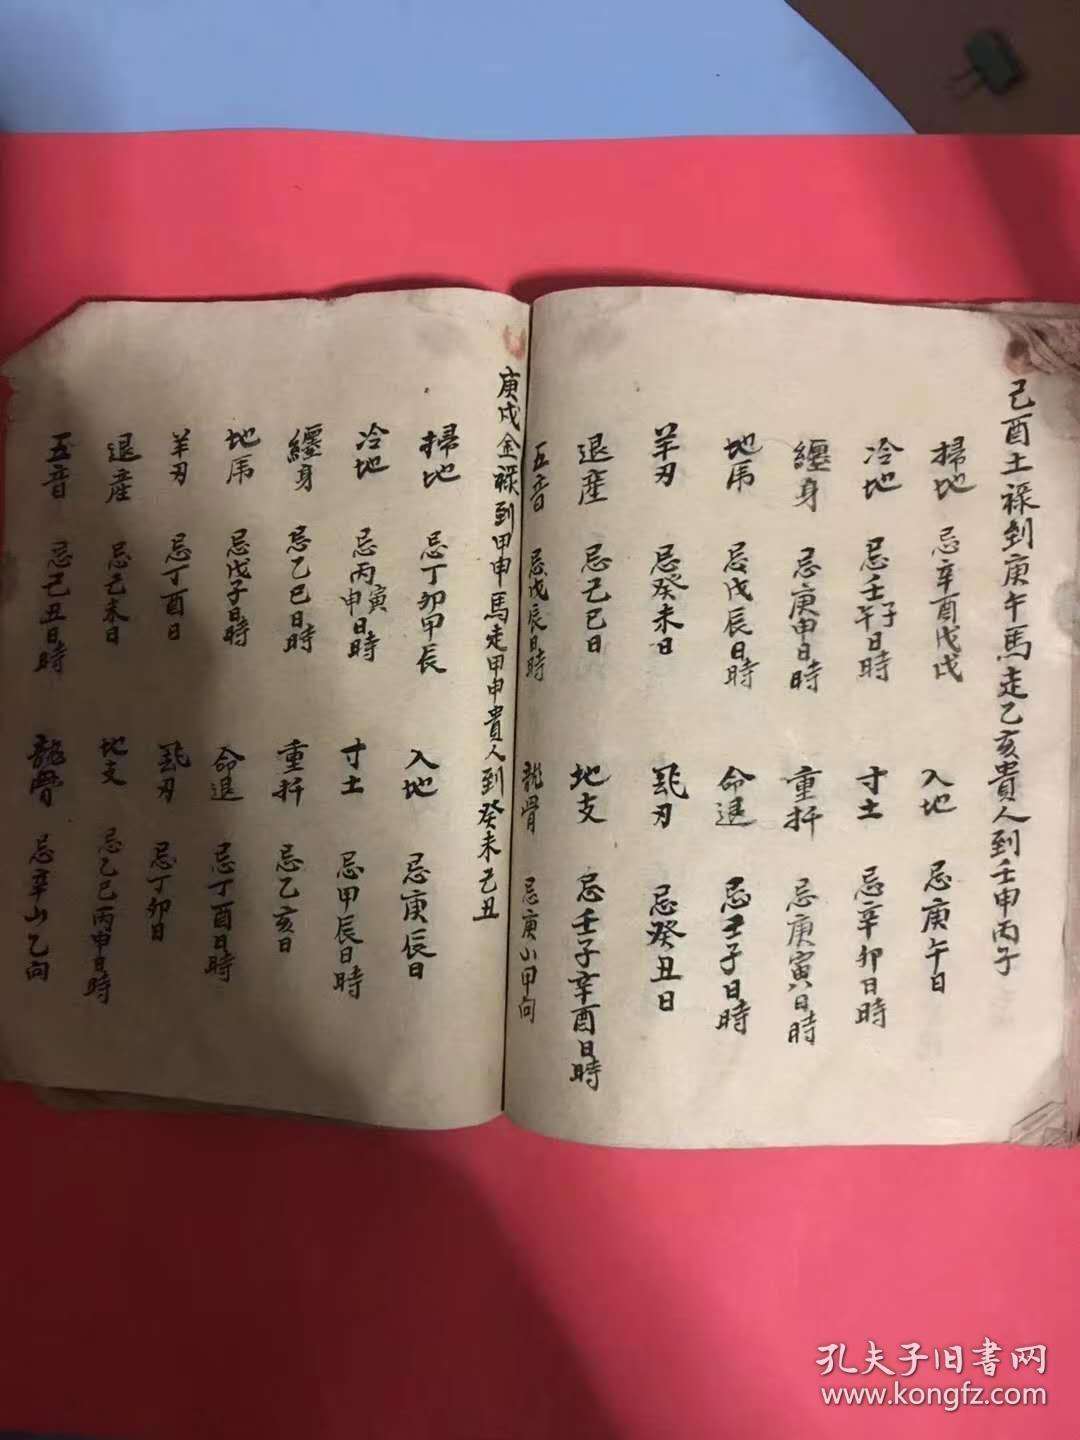 己酉土祿到庚午馬走乙亥貴人到壬申丙子
掃地 忌辛酉戊戌 入地 忌庚午日
冷地 忌壬子午日時 寸土 忌辛卯日時
纏身 忌庚申日時 重扦 忌庚寅日時
地馬 忌戊辰日時 命退 忌壬子日時
羊刃 忌癸未日 飛刃 忌癸丑日
退産 忌己巳日 地支 忌壬子辛酉日時
五音 忌戊辰日時 龍骨 忌庚山甲向
庚戌金祿到甲申馬走甲申貴人到癸未己丑
掃地 忌丁卯甲辰 入地 忌庚辰日
冷地 忌丙寅申日時 寸土 忌甲辰日時
纏身 忌乙巳日時 重扦 忌乙亥日
地馬 忌戊子日時 命退 忌丁酉日時
羊刃 忌丁酉日 飛刃 忌丁卯日
退産 忌己未日 地支 忌乙巳丙申日時
五音 忌己丑日時 龍骨 忌辛山乙向
孔夫子旧書网
www.kongfz.com